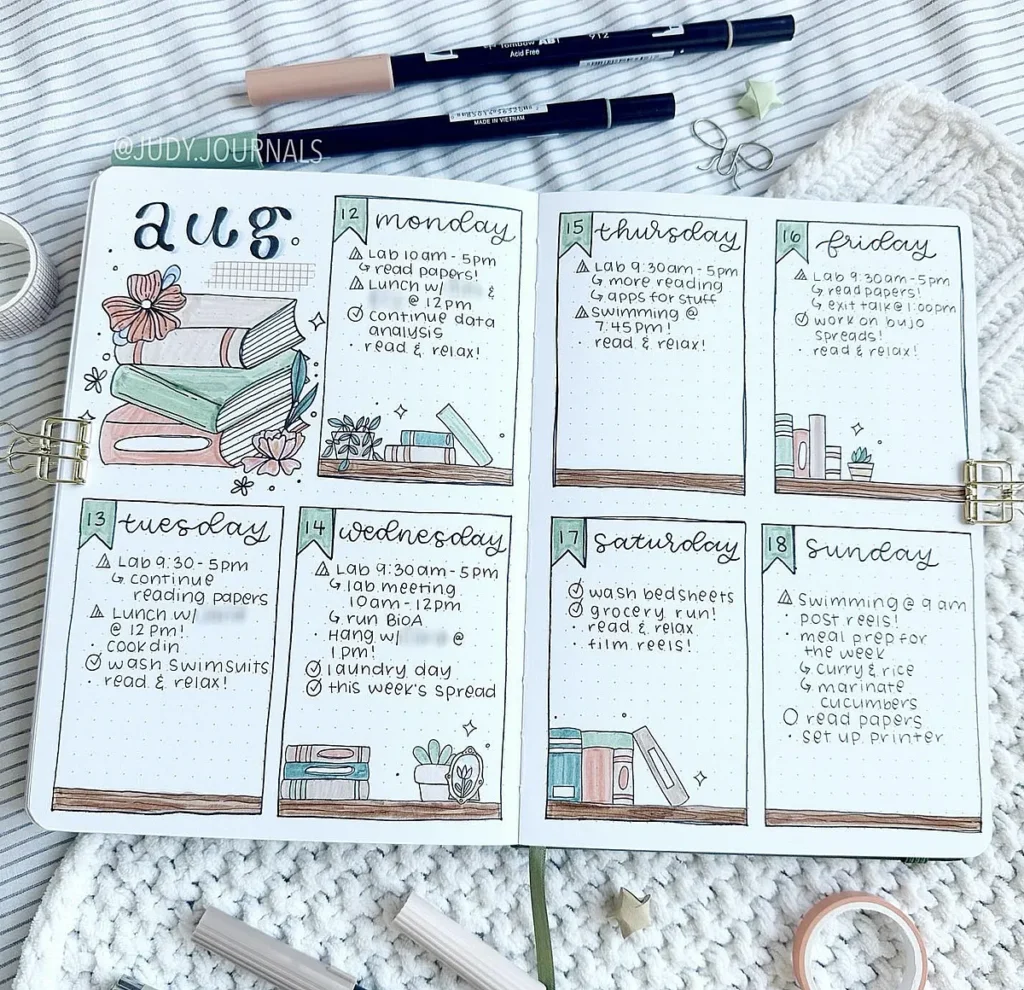 Tombow ABT 912
Acid Free
MADE IN VIETNAM
@JUDY.JOURNALS
aug.
12 monday
Lab 10am - 5pm
↳ read papers!
Lunch w/ &
@ 12pm
continue data
analysis
· read & relax!
13 tuesday
Lab 9:30 - 5pm
↳ continue
reading papers
Lunch w/
@ 12pm!
· cook din
wash swimsuits
· read & relax!
14 wednesday
Lab 9:30am - 5pm
↳ lab meeting
10am - 12pm
↳ run BioA
· Hang w/ @
1pm!
laundry day
this week's spread
15 thursday
Lab 9:30am - 5pm
↳ more reading
↳ apps for stuff
Swimming @
7:45pm!
· read & relax!
16 friday
Lab 9:30am - 5pm
↳ read papers!
↳ exit talk @ 1:00pm
work on bujo
spreads!
· read & relax!
17 saturday
wash bedsheets
grocery run!
· read & relax
· film reels!
18 sunday
Swimming @ 9am
post reels!
· meal prep for
the week
↳ curry & rice
↳ marinate
cucumbers
read papers
· set up printer